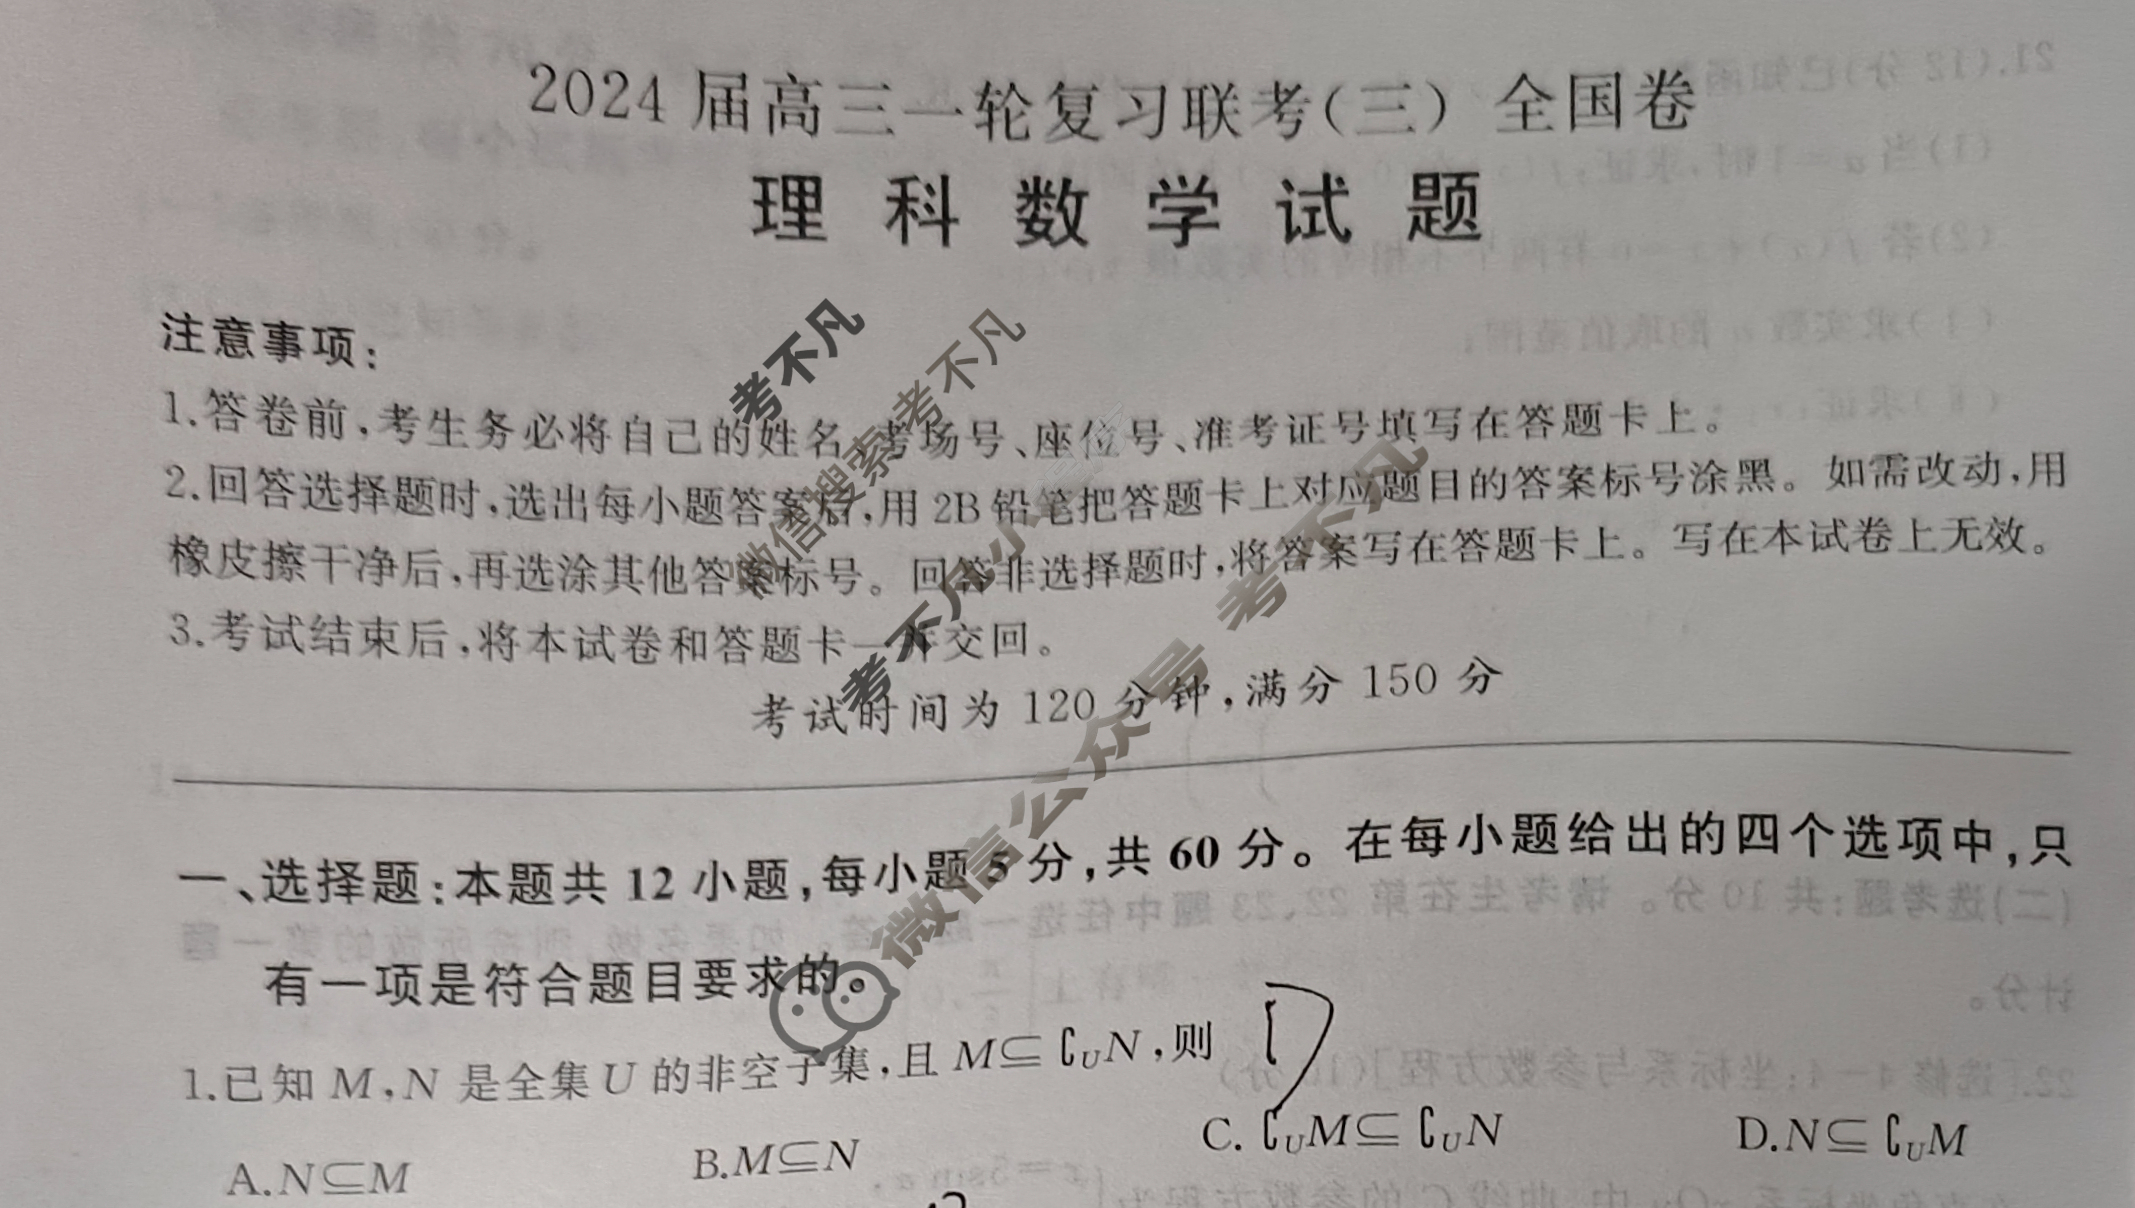 2024 届高三一轮复习联考(三) 全国卷
理科数学试题
注意事项:
1.答卷前,考生务必将自己的姓名、考场号、座位号、准考证号填写在答题卡上。
2.回答选择题时,选出每小题答案后,用 2B 铅笔把答题卡上对应题目的答案标号涂黑。如需改动,用
橡皮擦干净后,再选涂其他答案标号。回答非选择题时,将答案写在答题卡上。写在本试卷上无效。
3.考试结束后,将本试卷和答题卡一并交回。
考试时间为 120 分钟,满分 150 分
一、选择题:本题共 12 小题,每小题 5 分,共 60 分。在每小题给出的四个选项中,只
有一项是符合题目要求的。
1.已知 M,N 是全集 U 的非空子集,且 M⊆∁UN,则
D
A.N⊆M B.M⊆N C.∁UM⊆∁UN D.N⊆∁UM
考不凡
微信搜索考不凡
考不凡小
微信公众号 考不凡